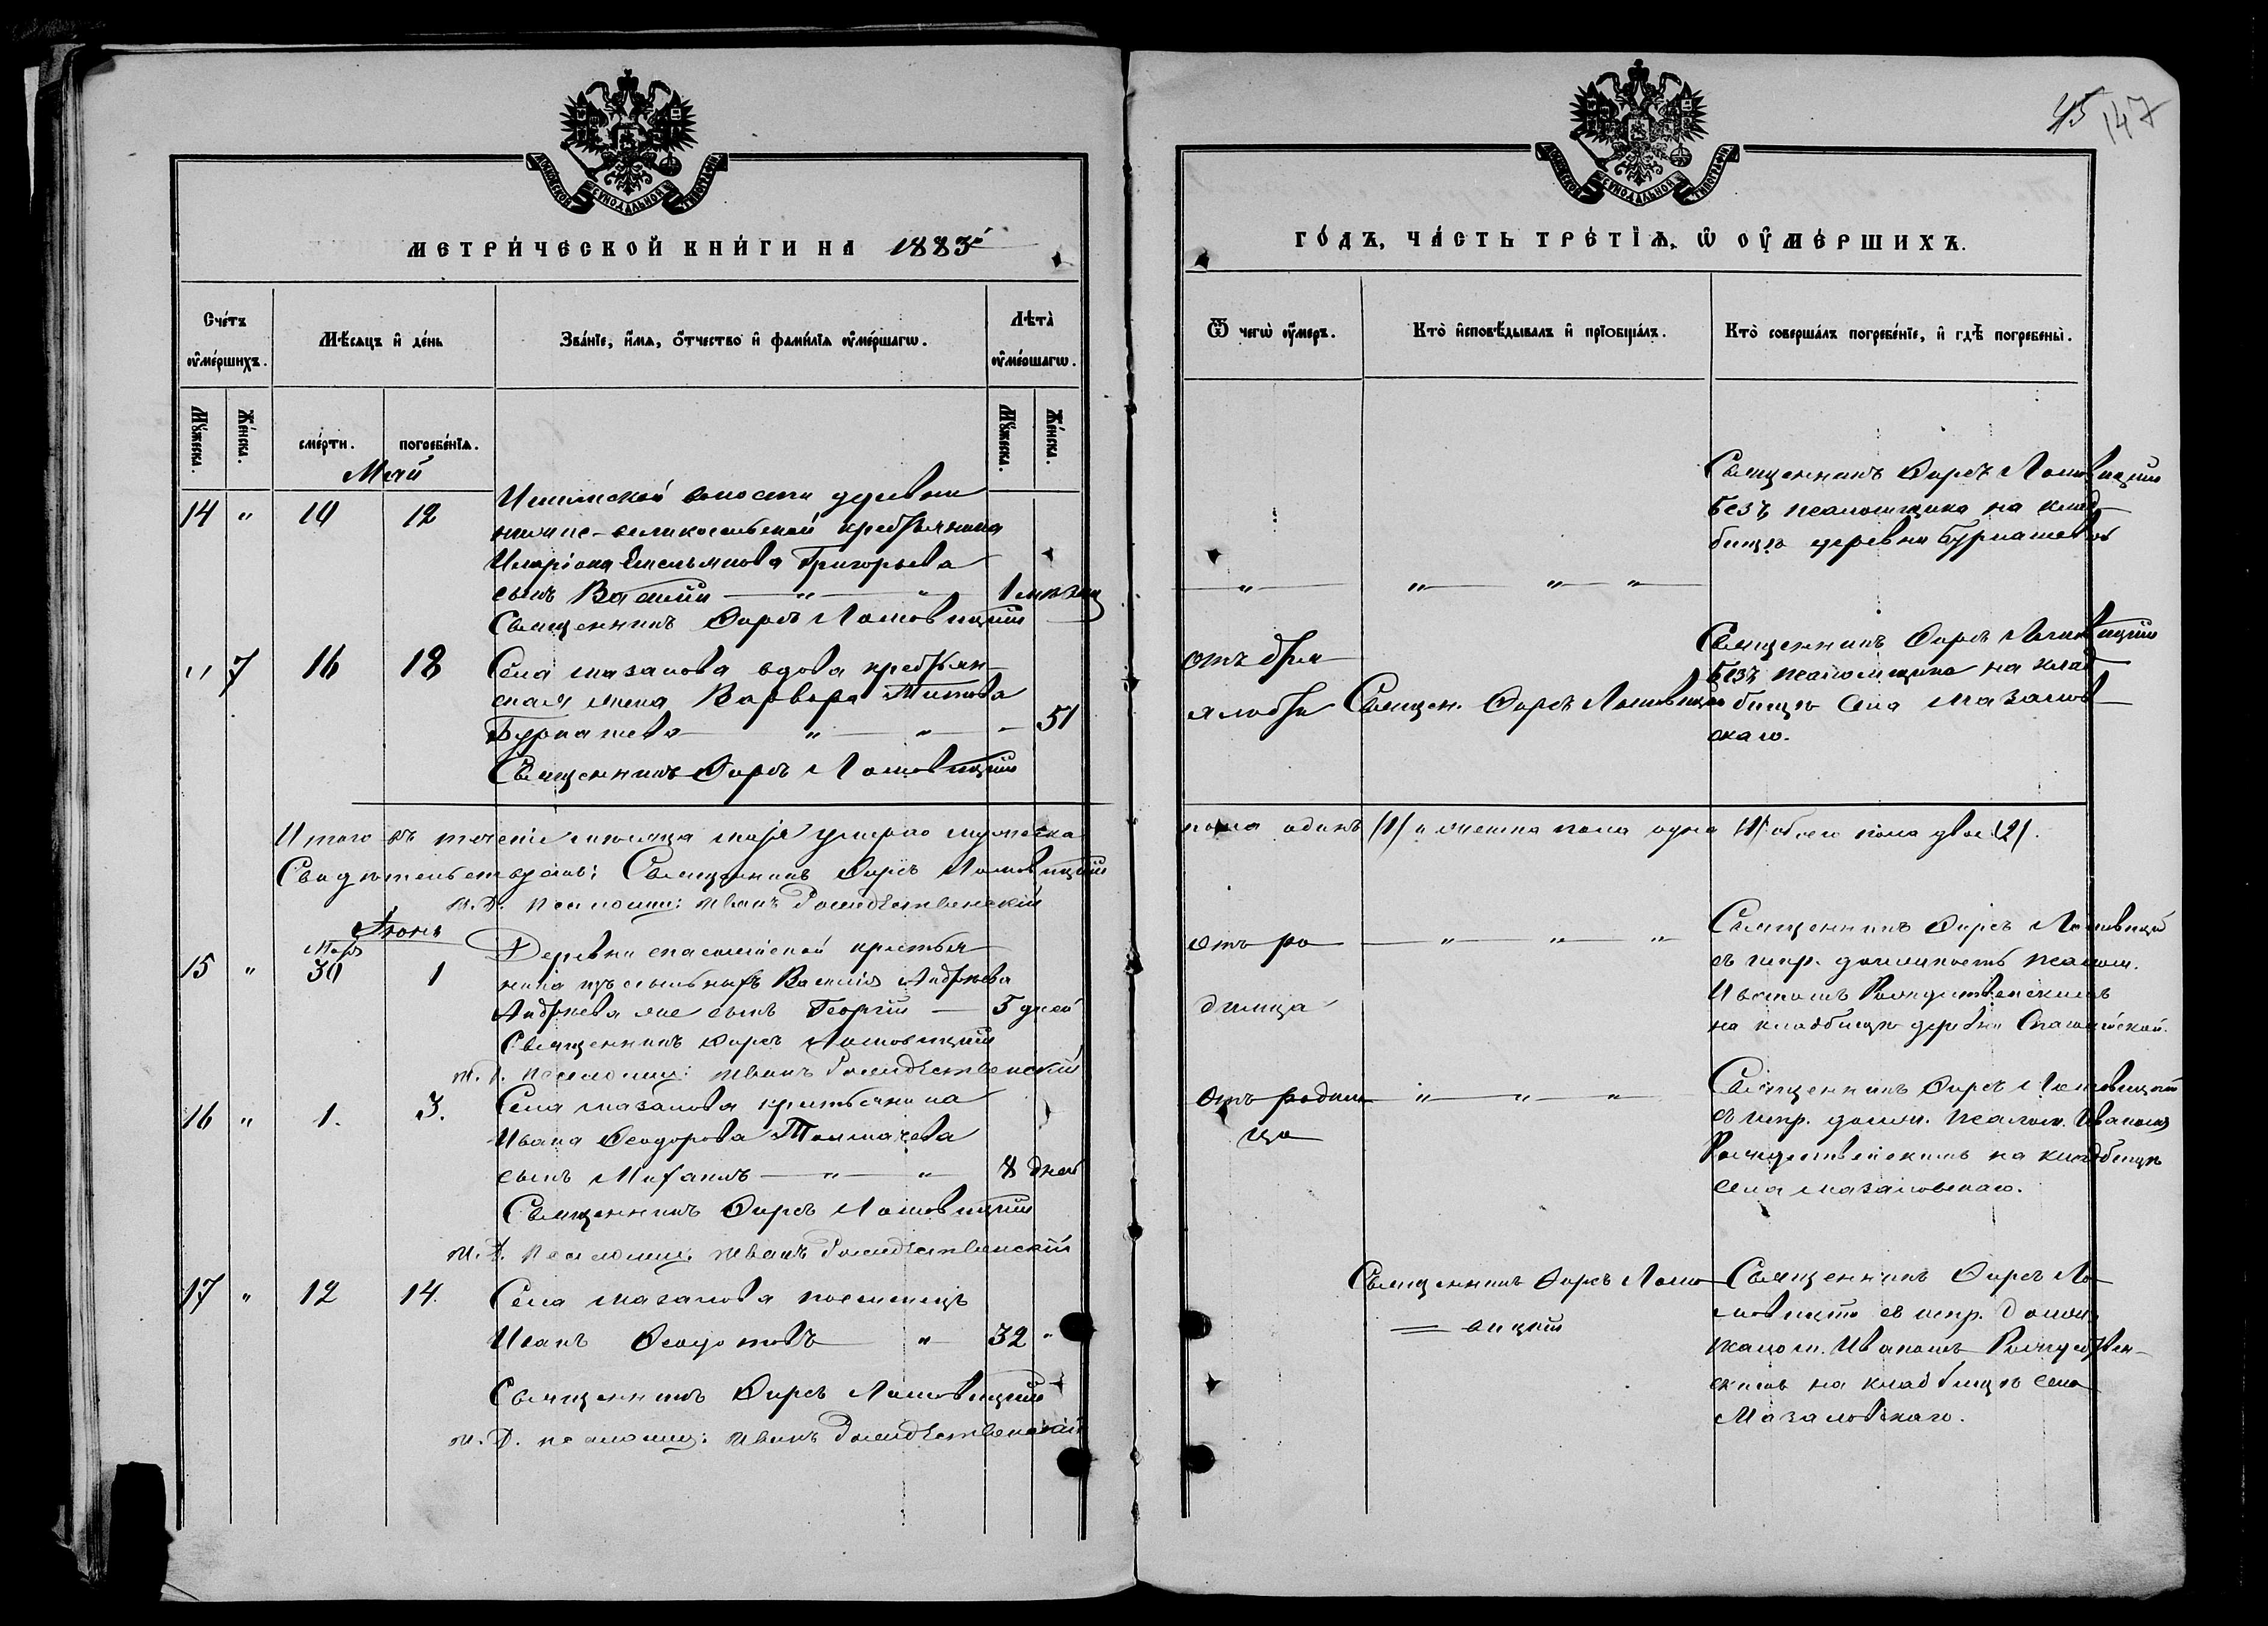 45 147
МЕТРИ́ЧЕСКОЙ КНИ́ГИ НА 1883й
ГО́ДЪ, ЧА́СТЬ ТРЕ́ТІѦ, Ѡ ОУ҆МЕ́РШИХЪ.
Сче́тъ оу҆ме́ршихъ.
Мѣ́сяцъ и҆ де́нь
Зва́ніе, и҆́мя, ѻ҆́тчество и҆ фами́лія оу҆ме́ршагѡ.
Лѣта̀ оу҆ме́ршагѡ.
Ѿ чегѡ̀ оу҆́меръ.
Кто̀ и҆сповѣ́дывалъ и҆ пріѻбща́лъ.
Кто̀ соверша́лъ погребе́ніе, и҆ гдѣ̀ погребены̀.
Му́жеска.
Же́нска.
сме́рти.
погребе́нія.
Му́жеска.
Же́нска.
Май
14 " 10 12
волости деревни
крестьянина
Иларіона Емельянова Григорьева
сынъ Василій — " — " 1 мѣсяц
Священникъ Фирсъ Ломовицкій
— " — " — " — "
Священникъ Фирсъ Ломовицкій
безъ псаломщика на клад-
бищѣ деревни Бурмашевой
" 7 16 18
Села Мазалова вдова крестьян-
ская жена Варвара Титова
Бурмашева — " — " — 51
Священникъ Фирсъ Ломовицкій
Священ. Фирсъ Ломовицкій
Священникъ Фирсъ Ломовицкій
безъ псаломщика на клад-
бищѣ села Мазалов-
скаго.
Итого въ теченіе мѣсяца мая умерло мужеска пола одинъ /1/ и женска пола одна /1/ обоего пола двое /2/.
Свидѣтельствуемъ: Священникъ Фирсъ Ломовицкій
и. д. псаломщ: Иванъ Рождественскій
Іюнь
15 " Мая 30 1
Деревни Спасолійской крестья-
нина изъ ссыльныхъ Василія Андреева
Андреева же сынъ Георгій — 5 дней
Священникъ Фирсъ Ломовицкій
и. д. псаломщ: Иванъ Рождественскій
отъ ро-
димца
— " — " — "
Священникъ Фирсъ Ломовицкій
съ испр. должность псалом.
Иваномъ Рождественскимъ
на кладбищѣ деревни Спасолійской.
16 " 1. 3.
Села Мазалова крестьянина
Ивана Ѳеодорова Толмачева
сынъ Михаилъ — " — " 8 дней
Священникъ Фирсъ Ломовицкій
и. д. псаломщ. Иванъ Рождественскій
Отъ родим-
ца
" — " — "
Священникъ Фирсъ Ломовицкій
съ испр. должн. псалом. Иваномъ
Рождественскимъ на кладбищѣ
села Мазаловскаго.
17 " 12 14.
Села Мазалова поселенецъ
Иванъ Ѳедотовъ — " 32 "
Священникъ Фирсъ Ломовицкій
и. д. псаломщ: Иванъ Рождественскій
Священникъ Фирсъ Ломо-
вицкій
Священникъ Фирсъ Ло-
мовицкій съ испр. должн.
псалом. Иваномъ Рождествен-
скимъ на кладбищѣ села
Мазаловскаго.